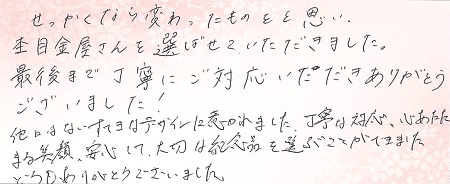 せっかくなら変わったものをと思い、
杢目金屋さんを選ばせていただきました。
最後まで丁寧にご対応いただきありがとう
ございました!
他にはないすてきなデザインに惹かれました。丁寧な対応、心あたた
まる笑顔、安心して、大切な記念品を選ぶことができました
どうもありがとうございました。